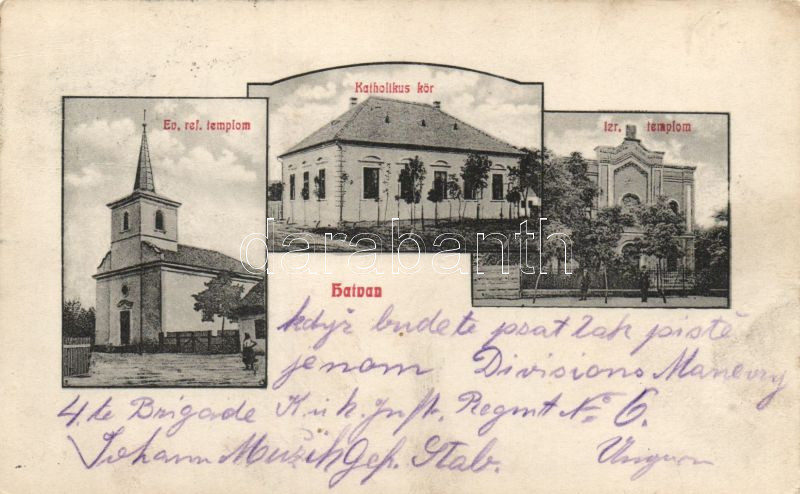 Katholikus kör
Ev. ref. templom
Izr. templom
darabanth
Hatvan
když budete psat tak pistě
jenom Divisions Manevry
4.te Brigade K.u.k. Inft. Regmt No. 6.
Johann Mužik Gef. Stab. Ungarn